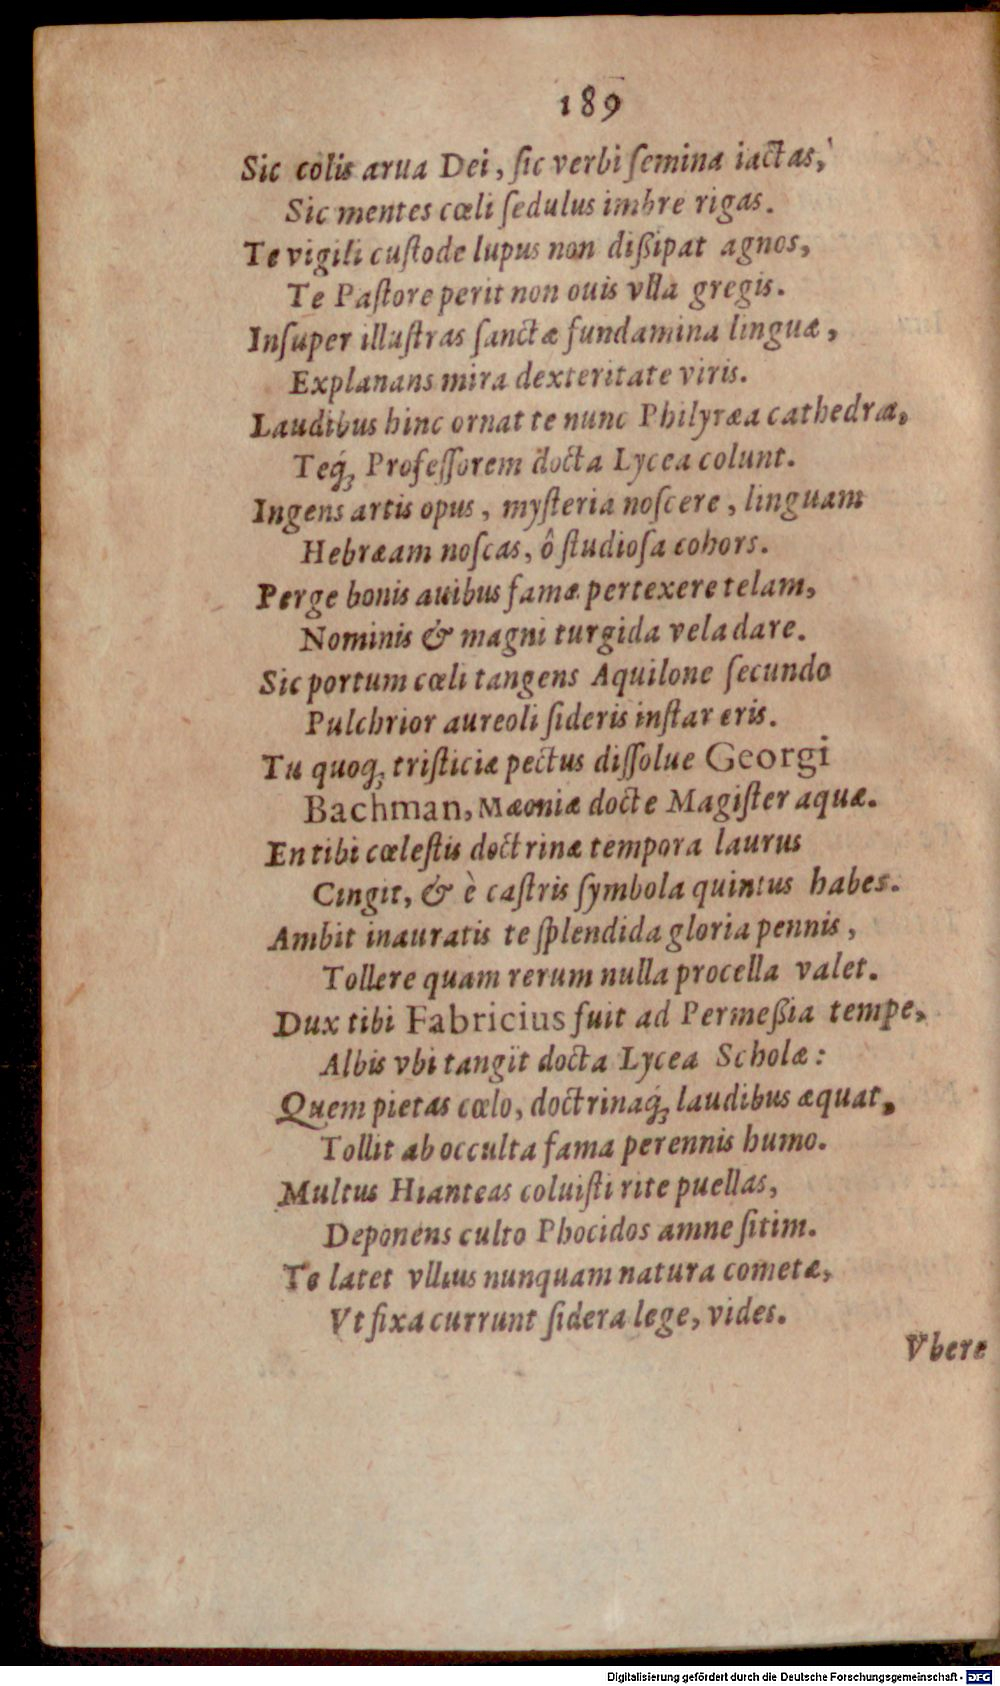 189
Sic colis arua Dei, ſic verbi ſemina iactas,
Sic mentes cœli ſedulus imbre rigas.
Te vigili cuſtode lupus non dißipat agnos,
Te Paſtore perit non ouis vlla gregis.
Inſuper illuſtras ſanctæ fundamina linguæ,
Explanans mira dexteritate viris.
Laudibus hinc ornat te nunc Philyræa cathedra,
Teq́ꝫ Profeſſorem docta Lycea colunt.
Ingens artis opus, myſteria noſcere, linguam
Hebræam noſcas, ô ſtudioſa cohors.
Perge bonis auibus famæ pertexere telam,
Nominis & magni turgida vela dare.
Sic portum cœli tangens Aquilone ſecundo
Pulchrior aureoli ſideris inſtar eris.
Tu quoqꝫ triſticiæ pectus diſſolue Georgi
Bachman, Mæoniæ docte Magiſter aquæ.
En tibi cœleſtis doctrinæ tempora laurus
Cingit, & è caſtris ſymbola quintus habes.
Ambit inauratis te ſplendida gloria pennis,
Tollere quam rerum nulla procella valet.
Dux tibi Fabricius fuit ad Permeßia tempe,
Albis vbi tangit docta Lycea Scholæ:
Quem pietas cœlo, doctrinaq́ꝫ laudibus æquat,
Tollit ab occulta fama perennis humo.
Multus Hianteas coluiſti rite puellas,
Deponens culto Phocidos amne ſitim.
Te latet vllius nunquam natura cometæ,
Vt fixa currunt ſidera lege, vides.
Vbere
Digitalisierung gefördert durch die Deutsche Forschungsgemeinschaft - DFG